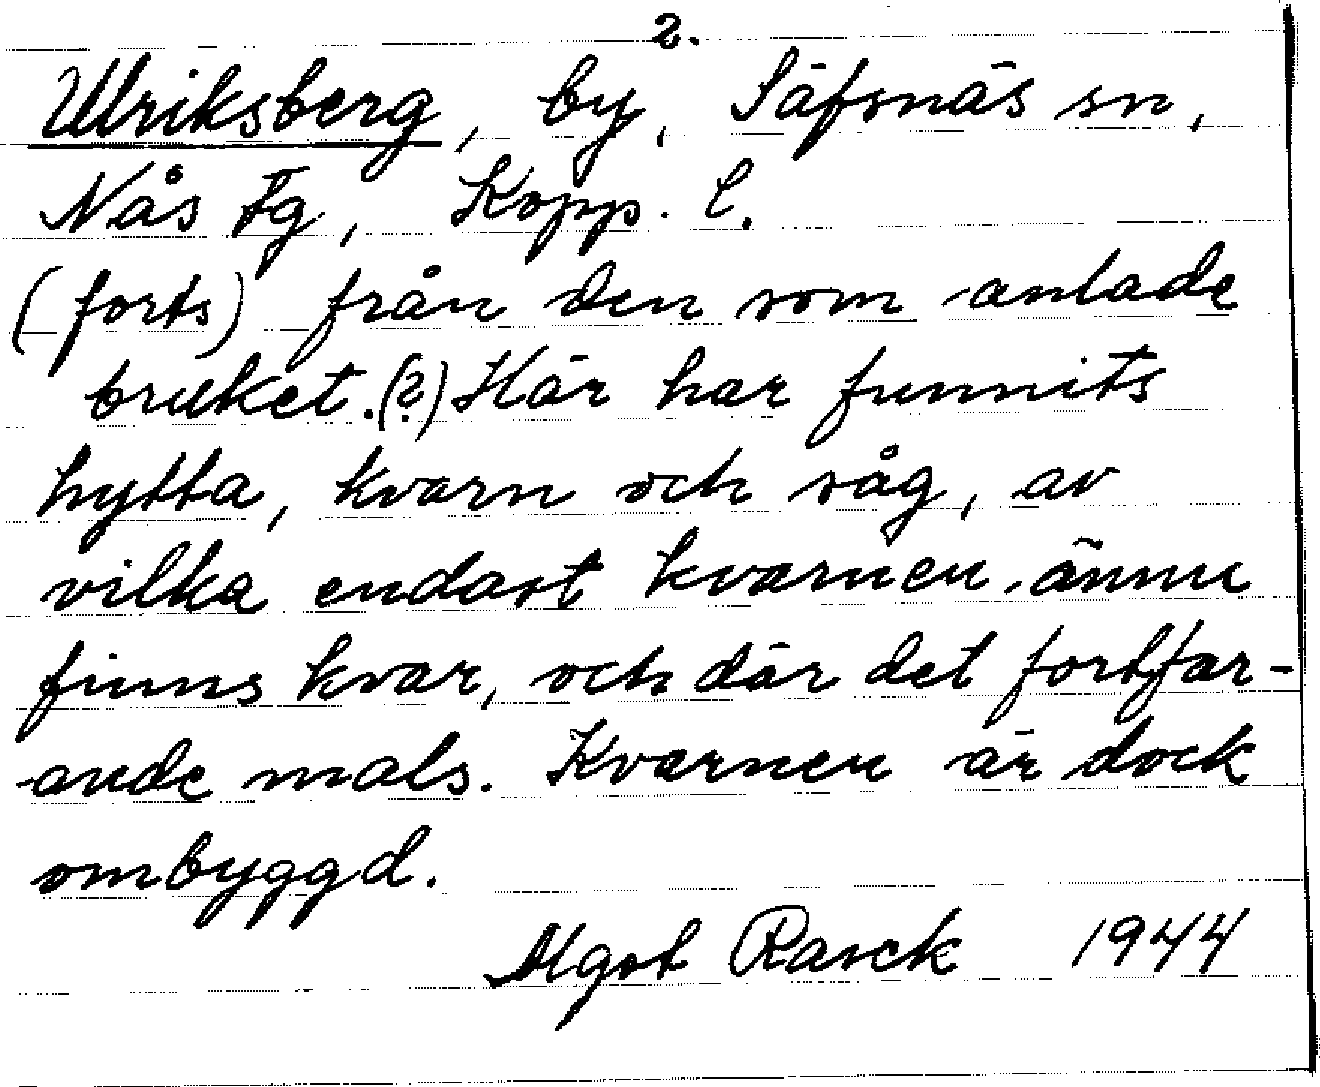 2.
Ulriksberg, by, Säfsnäs sn,
Nås Fg, Kopp. l.
(forts) från den som anlade
bruket.(?) Här har funnits
hytta, kvarn och såg, av
vilka endast kvarnen ännu
finns kvar, och där det fortfar-
ande mals. Kvarnen är dock
ombyggd.
Algot Rasck 1944